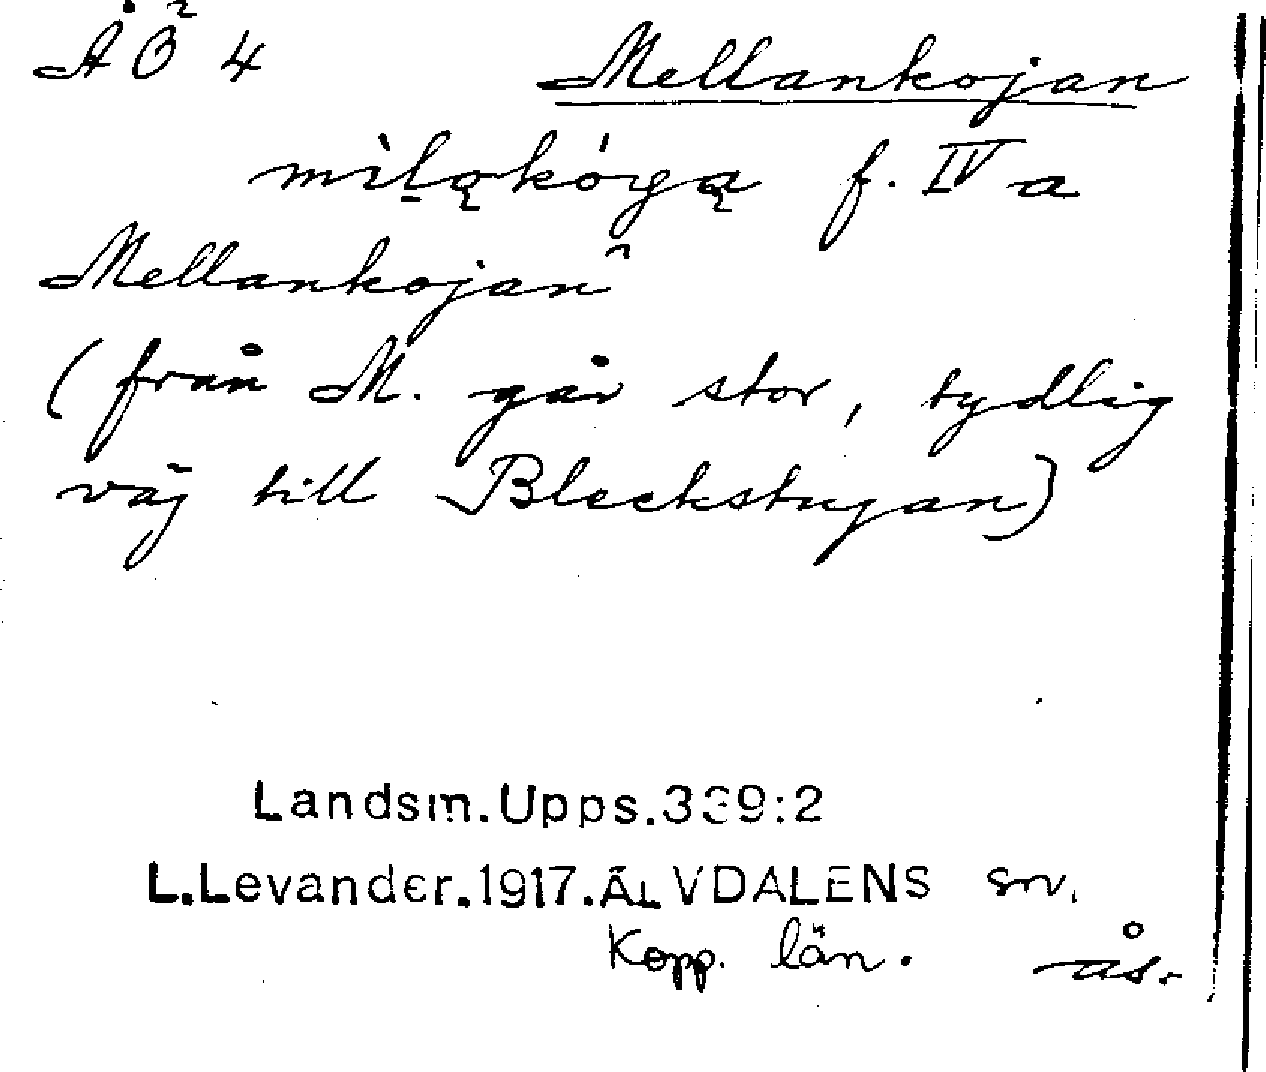 ÅÖ 4 Mellankojan
mìlą̣kógą f. IV a
Mellankojan
(från M. går stor, tydlig
väg till Bleckstugan)
Landsm.Upps.339:2
L.Levander.1917.ÄLVDALENS sn.
Kopp. län. ås.